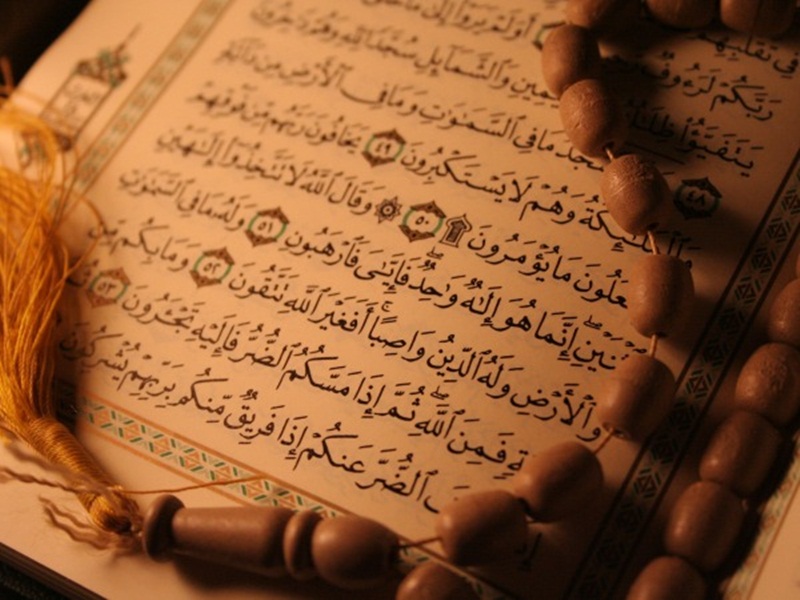 فِى تَقَلُّبِهِمْ
رَبَّكُمْ لَرَءُوفٌ أَوَلَمْ يَرَوْا۟ إِلَىٰ مَا خَلَقَ
يَتَفَيَّؤُا۟ ظِلَٰلُهُۥ ٱلْيَمِينِ وَٱلشَّمَآئِلِ سُجَّدًا لِّلَّهِ وَهُمْ دَٰخِرُونَ ٤٨
يَسْجُدُ مَا فِى ٱلسَّمَٰوَٰتِ وَمَا فِى ٱلْأَرْضِ مِن دَآبَّةٍ
وَٱلْمَلَٰٓئِكَةُ وَهُمْ لَا يَسْتَكْبِرُونَ ٤٩ يَخَافُونَ رَبَّهُم مِّن فَوْقِهِمْ
وَيَفْعَلُونَ مَا يُؤْمَرُونَ ۩ ٥٠ ۞ وَقَالَ ٱللَّهُ لَا تَتَّخِذُوٓا۟ إِلَٰهَيْنِ
ٱثْنَيْنِ إِنَّمَا هُوَ إِلَٰهٌ وَٰحِدٌ فَإِيَّٰىَ فَٱرْهَبُونِ ٥١ وَلَهُۥ مَا فِى ٱلسَّمَٰوَٰتِ
وَٱلْأَرْضِ وَلَهُ ٱلدِّينُ وَاصِبًا أَفَغَيْرَ ٱللَّهِ تَتَّقُونَ ٥٢ وَمَا بِكُم مِّن
فَمِنَ ٱللَّهِ ثُمَّ إِذَا مَسَّكُمُ ٱلضُّرُّ فَإِلَيْهِ تَجْـَٔرُونَ ٥٣
ٱلضُّرَّ عَنكُمْ إِذَا فَرِيقٌ مِّنكُم بِرَبِّهِمْ يُشْرِكُونَ